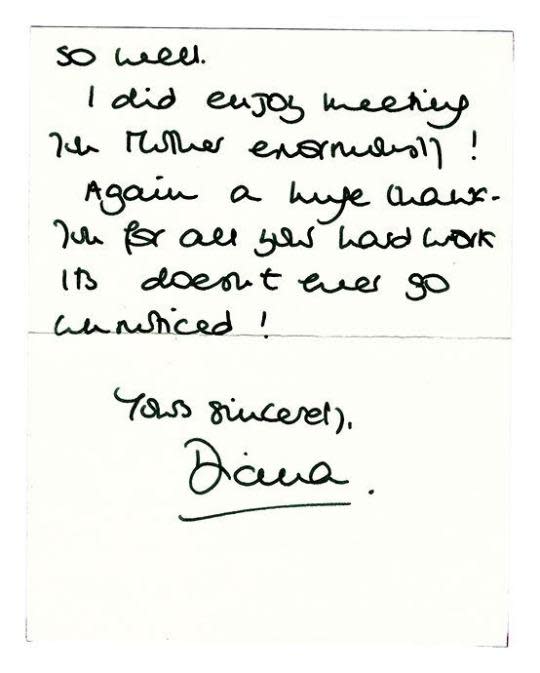 so well.
I did enjoy meeting
you Mother enormously!
Again a huge thank-
you for all your hard work
its doesn't ever go
unnoticed!
Yours sincerely,
Diana.